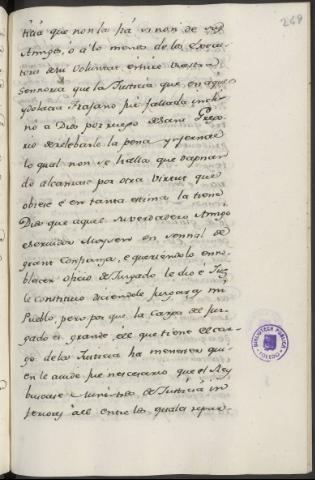 268
ticia que non la há vinon de sus
Amigos, ó á lo menos de los
tores de su Voluntat entre vuestra
Sennoria que la Justicia que en aquel
ydolatra Trajano fue fallada incli-
nó a Dios por ruego de San Grego-
rio de relebarlo la pena ynfernal
lo qual non se halla que dapnan-
do alcanzase por otra virtut que
obiese é en tanta estima la tiene
Dios que aquel su verdadero Amigo
é servidor Moysen en sennal de
grant confianza, é queriendolo enno-
blecer oficio de Jusgado le dio é Juez
le constituio diciendole Jusgaras mi
Pueblo, pero por que la carga del Jus-
gado es grande, é el que tiene el car-
go de la Justicia ha menester qui-
en le aiude fue nescesario que el Rey
buscase Ministros de Justicia in-
feriores á él entre los quales repar-
BIBLIOTECA PÚBLICA
TOLEDO